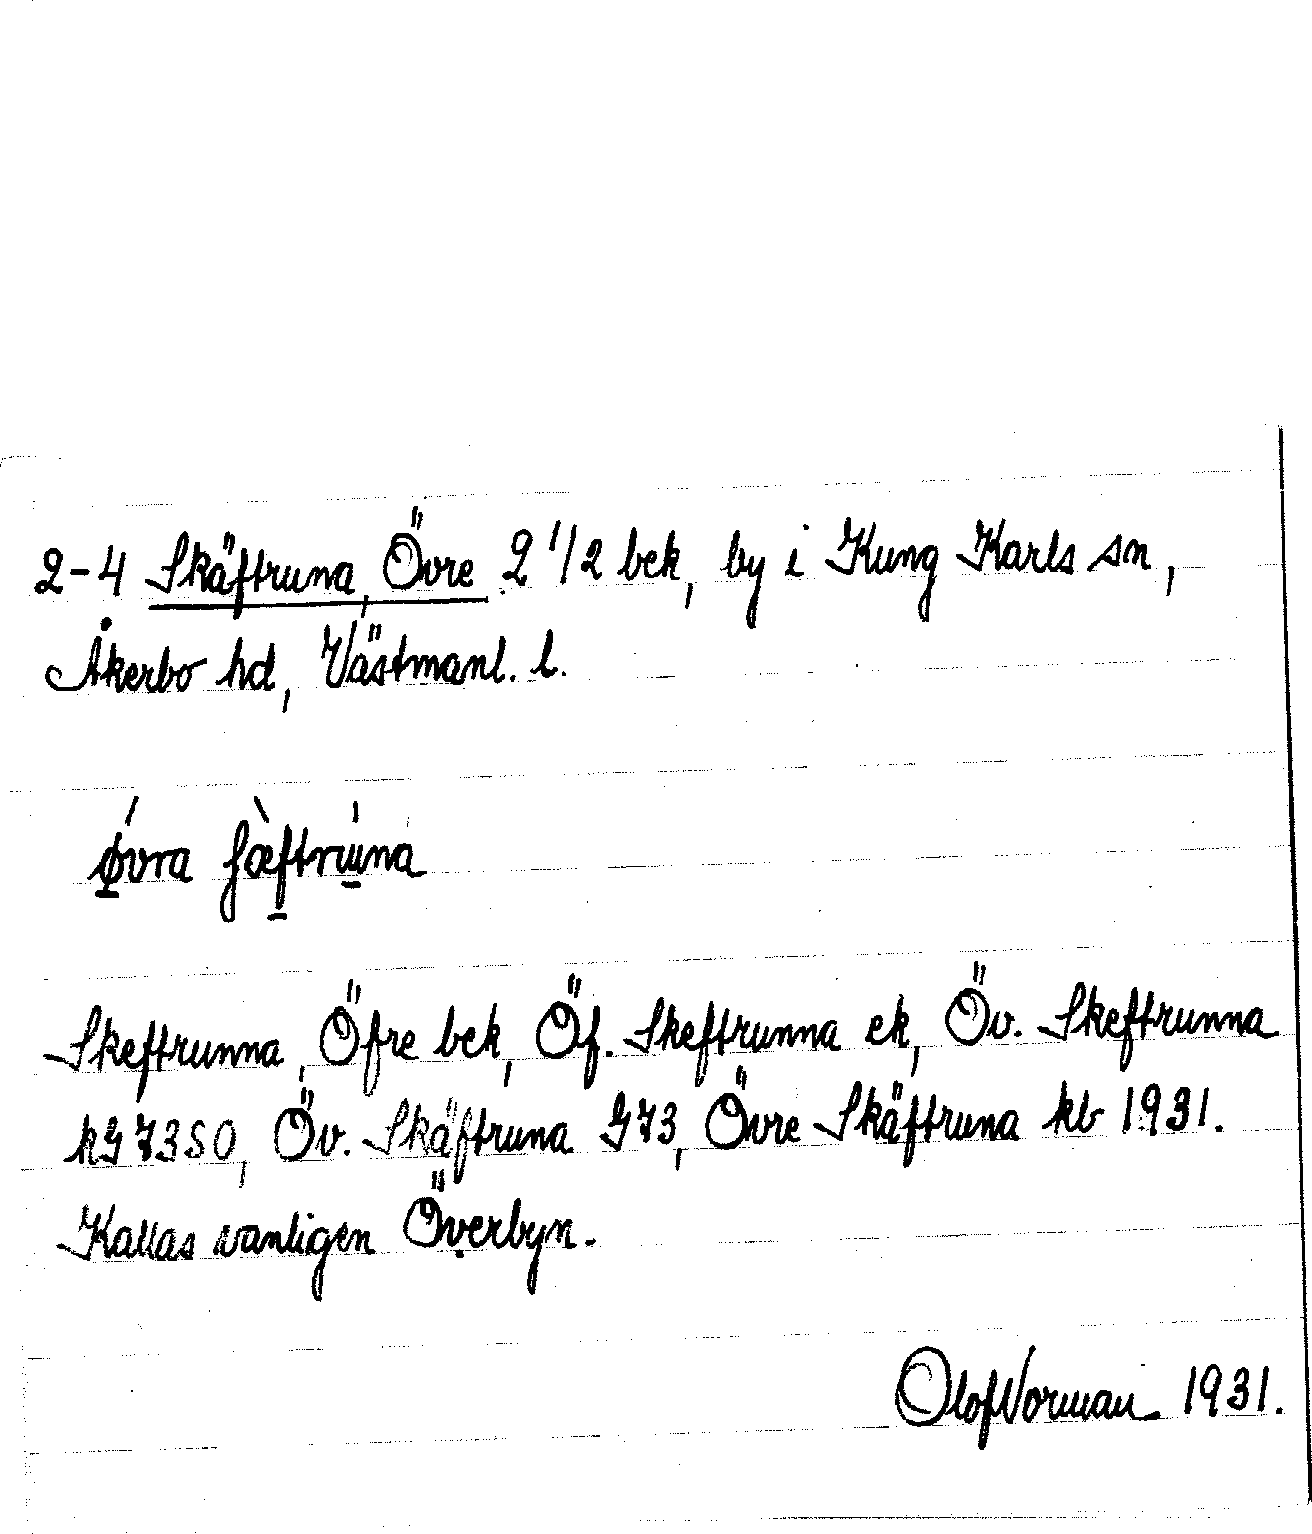 2-4 Skäftruna, Övre 2 1/2 bek, by i Kung Karls sn,
Åkerbo hd, Västmanl. l.
Skeftrunna, Öfre bek, Öf. Skeftrunna ek, Öv. Skeftrunna
kG 7350, Öv. Skäftruna G73, Övre Skäftruna kb 1931.
Kallas vanligen Överbyn.
Olof Norman 1931.